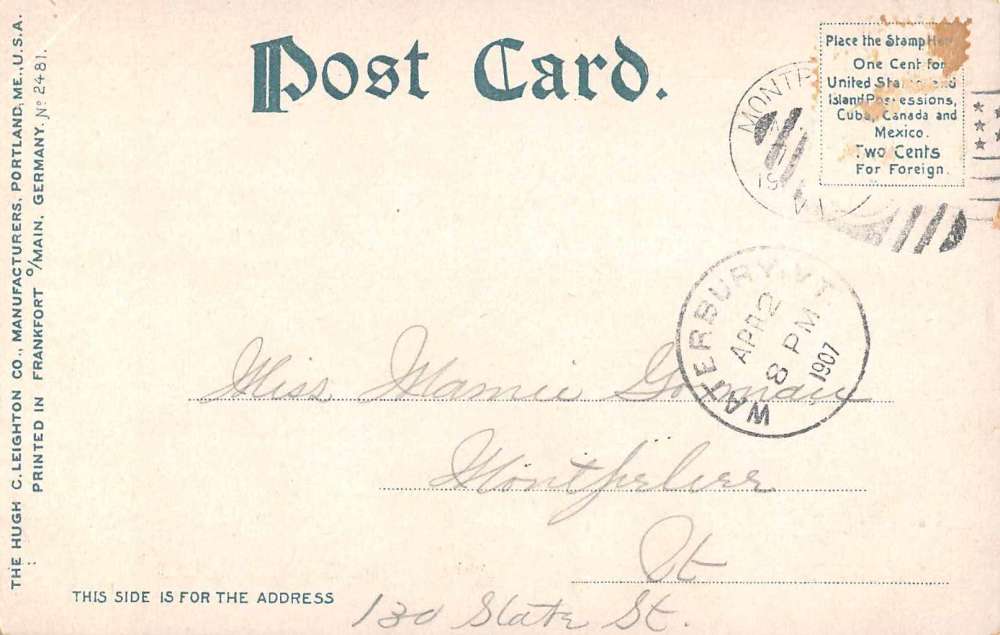 THE HUGH C. LEIGHTON CO., MANUFACTURERS, PORTLAND, ME., U.S.A.
PRINTED IN FRANKFORT o/MAIN, GERMANY. No 2481.
Post Card.
Place the Stamp Here
One Cent for
United States and
Island Possessions,
Cuba, Canada and
Mexico.
Two Cents
For Foreign.
MONTP
WATERBURY VT.
APR 2
8 PM
1907
Miss Mamie Gorman
Montpelier
Vt
130 State St.
THIS SIDE IS FOR THE ADDRESS